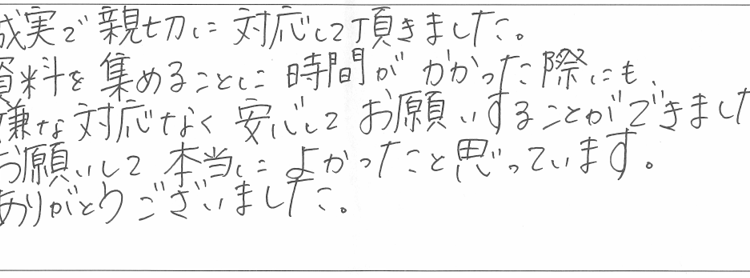 誠実で親切に対応して頂きました。
資料を集めることに時間がかかった際にも、
嫌な対応なく安心してお願いすることができました
お願いして本当によかったと思っています。
ありがとうございました。